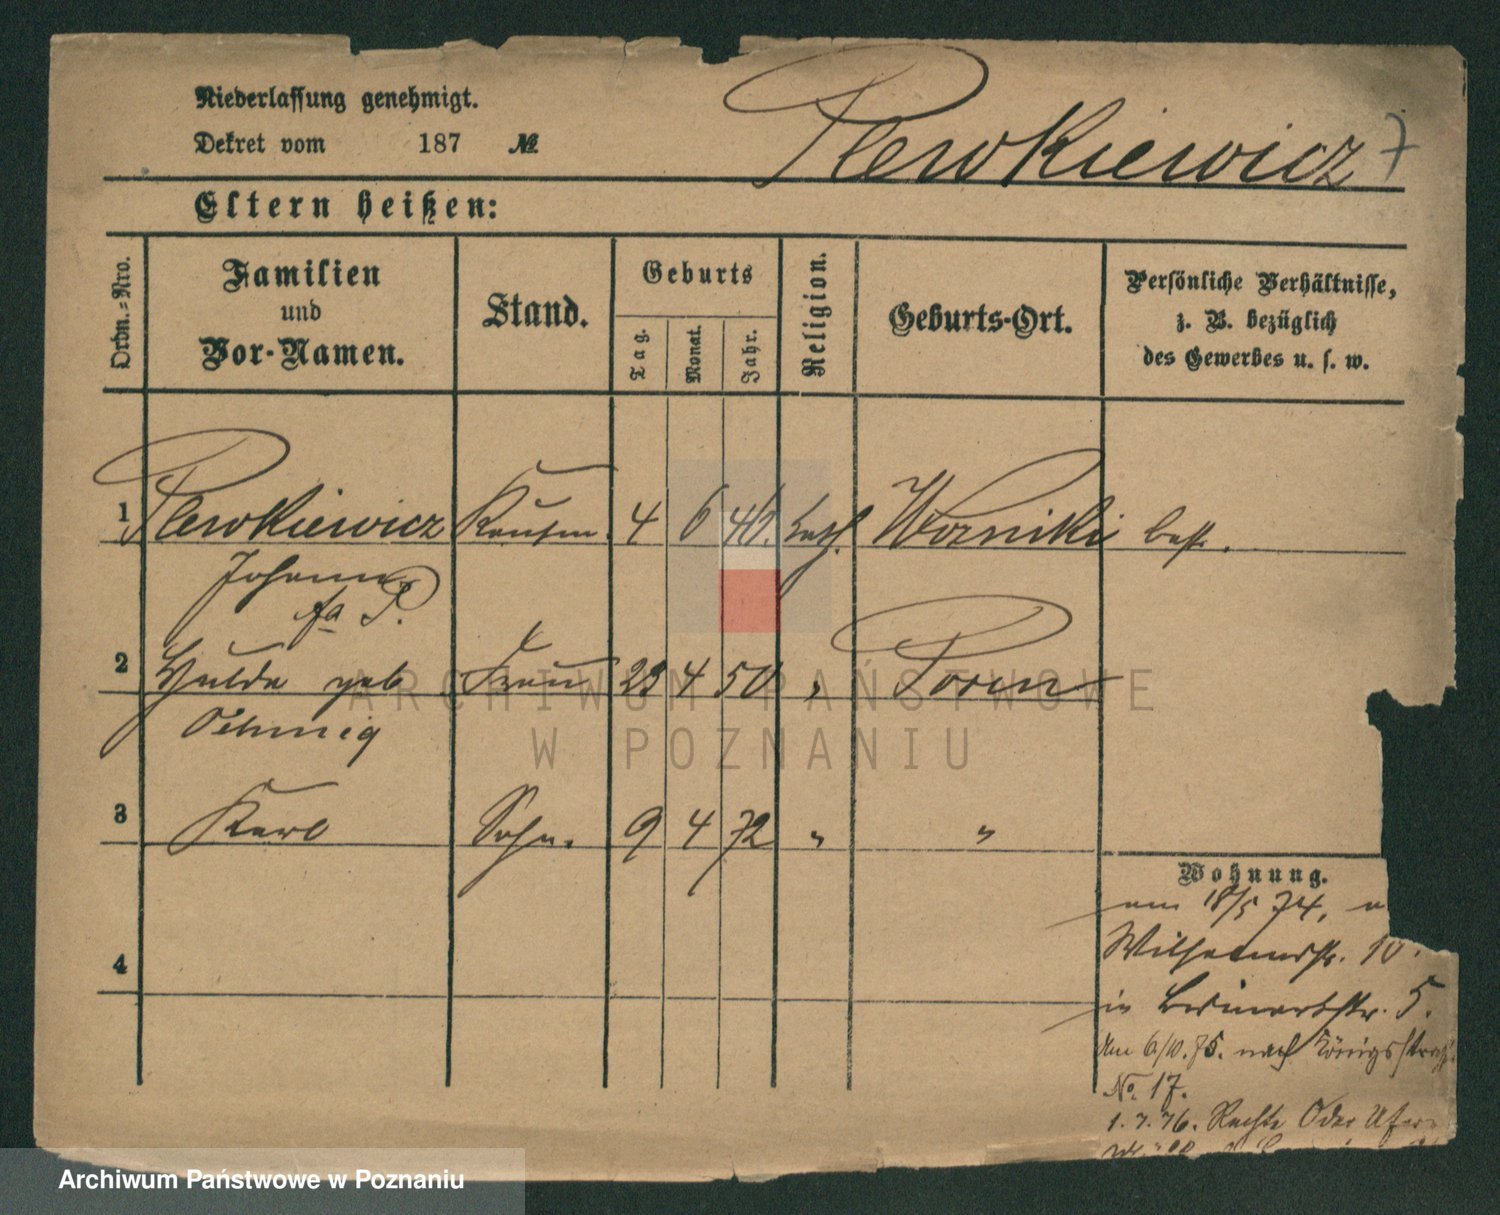 Niederlassung genehmigt.
Dekret vom 187 №
Plewkiewicz 7
Eltern heißen:
Ordn.-Nro.
Familien
und
Vor-Namen.
Stand.
Geburts
Tag.
Monat.
Jahr.
Religion.
Geburts-Ort.
Persönliche Verhältnisse,
z. B. bezüglich
des Gewerbes u. s. w.
1 Plewkiewicz Kaufm. 4 6 46. kath. Wozniki
Johann
fa P.
2 Hulda geb Frau 23 4 50 " Posen
Oehmig
3 Karl Sohn. 9 4 72 " "
4
Wohnung.
am 18/5 74,
Wilhelmstr. 10.
in Bismarkstr. 5.
Am 6/10. 75. nach Königsstraß
No. 17.
1. 7. 76. Rechte Oder Ufer
ARCHIWUM PAŃSTWOWE
W POZNANIU
Archiwum Państwowe w Poznaniu